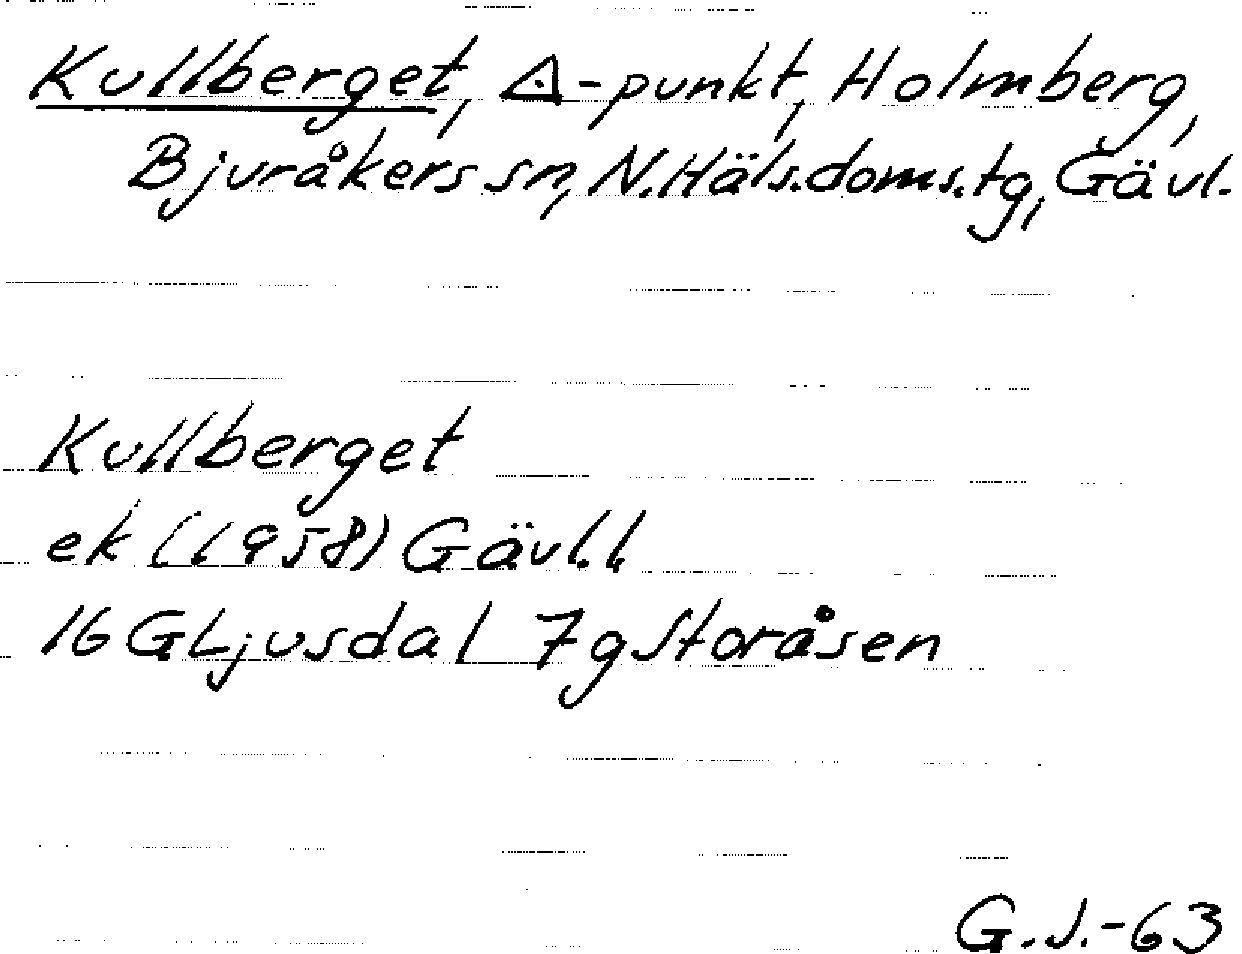 Kullberget, △-punkt, Holmberg,
Bjuråkers sn, N.Häls.doms.tg, Gävl.
Kullberget
ek (1958) Gävl.l.
16 G Ljusdal 7g Storåsen
G.J.-63